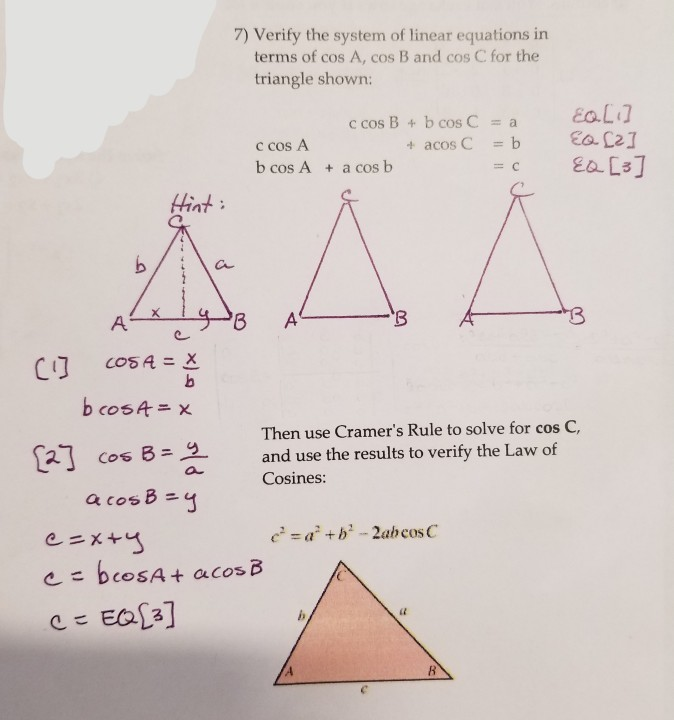 7) Verify the system of linear equations in
terms of cos A, cos B and cos C for the
triangle shown:
c cos B + b cos C = a EQ[1]
c cos A + acos C = b EQ[2]
b cos A + a cos b = c EQ[3]
Hint:
C
b a
A x y B
c
C
A B
C
A B
[1] cosA = x/b
b cosA = x
[2] cos B = y/a
a cosB = y
c = x+y
c = bcosA + acosB
c = EQ[3]
Then use Cramer's Rule to solve for cos C,
and use the results to verify the Law of
Cosines:
c² = a² + b² − 2ab cos C
C
b a
A B
c